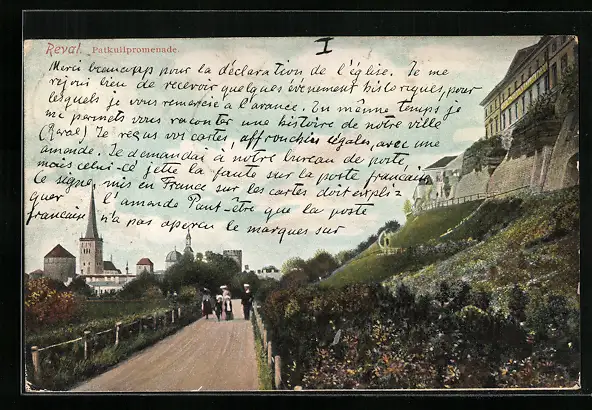 Reval. Patkullpromenade.
I
Merci beaucoup pour la déclaration de l'église. Je me
rejoui bien de recevoir quelques évenement historiques, pour
lesquels je vous remercie à l'avance. En même temps je
me permets vous raconter une histoire de notre ville
(Reval) Je reçus vos cartes, affronchies légales, avec une
amande. Je demandai à notre bureau de poste,
mais celui-ci jette la faute sur la poste français
le signe mis en France sur les cartes doit expli-
quer l'amande Peut-être que la poste
français n'a pas aperçu le marques sur